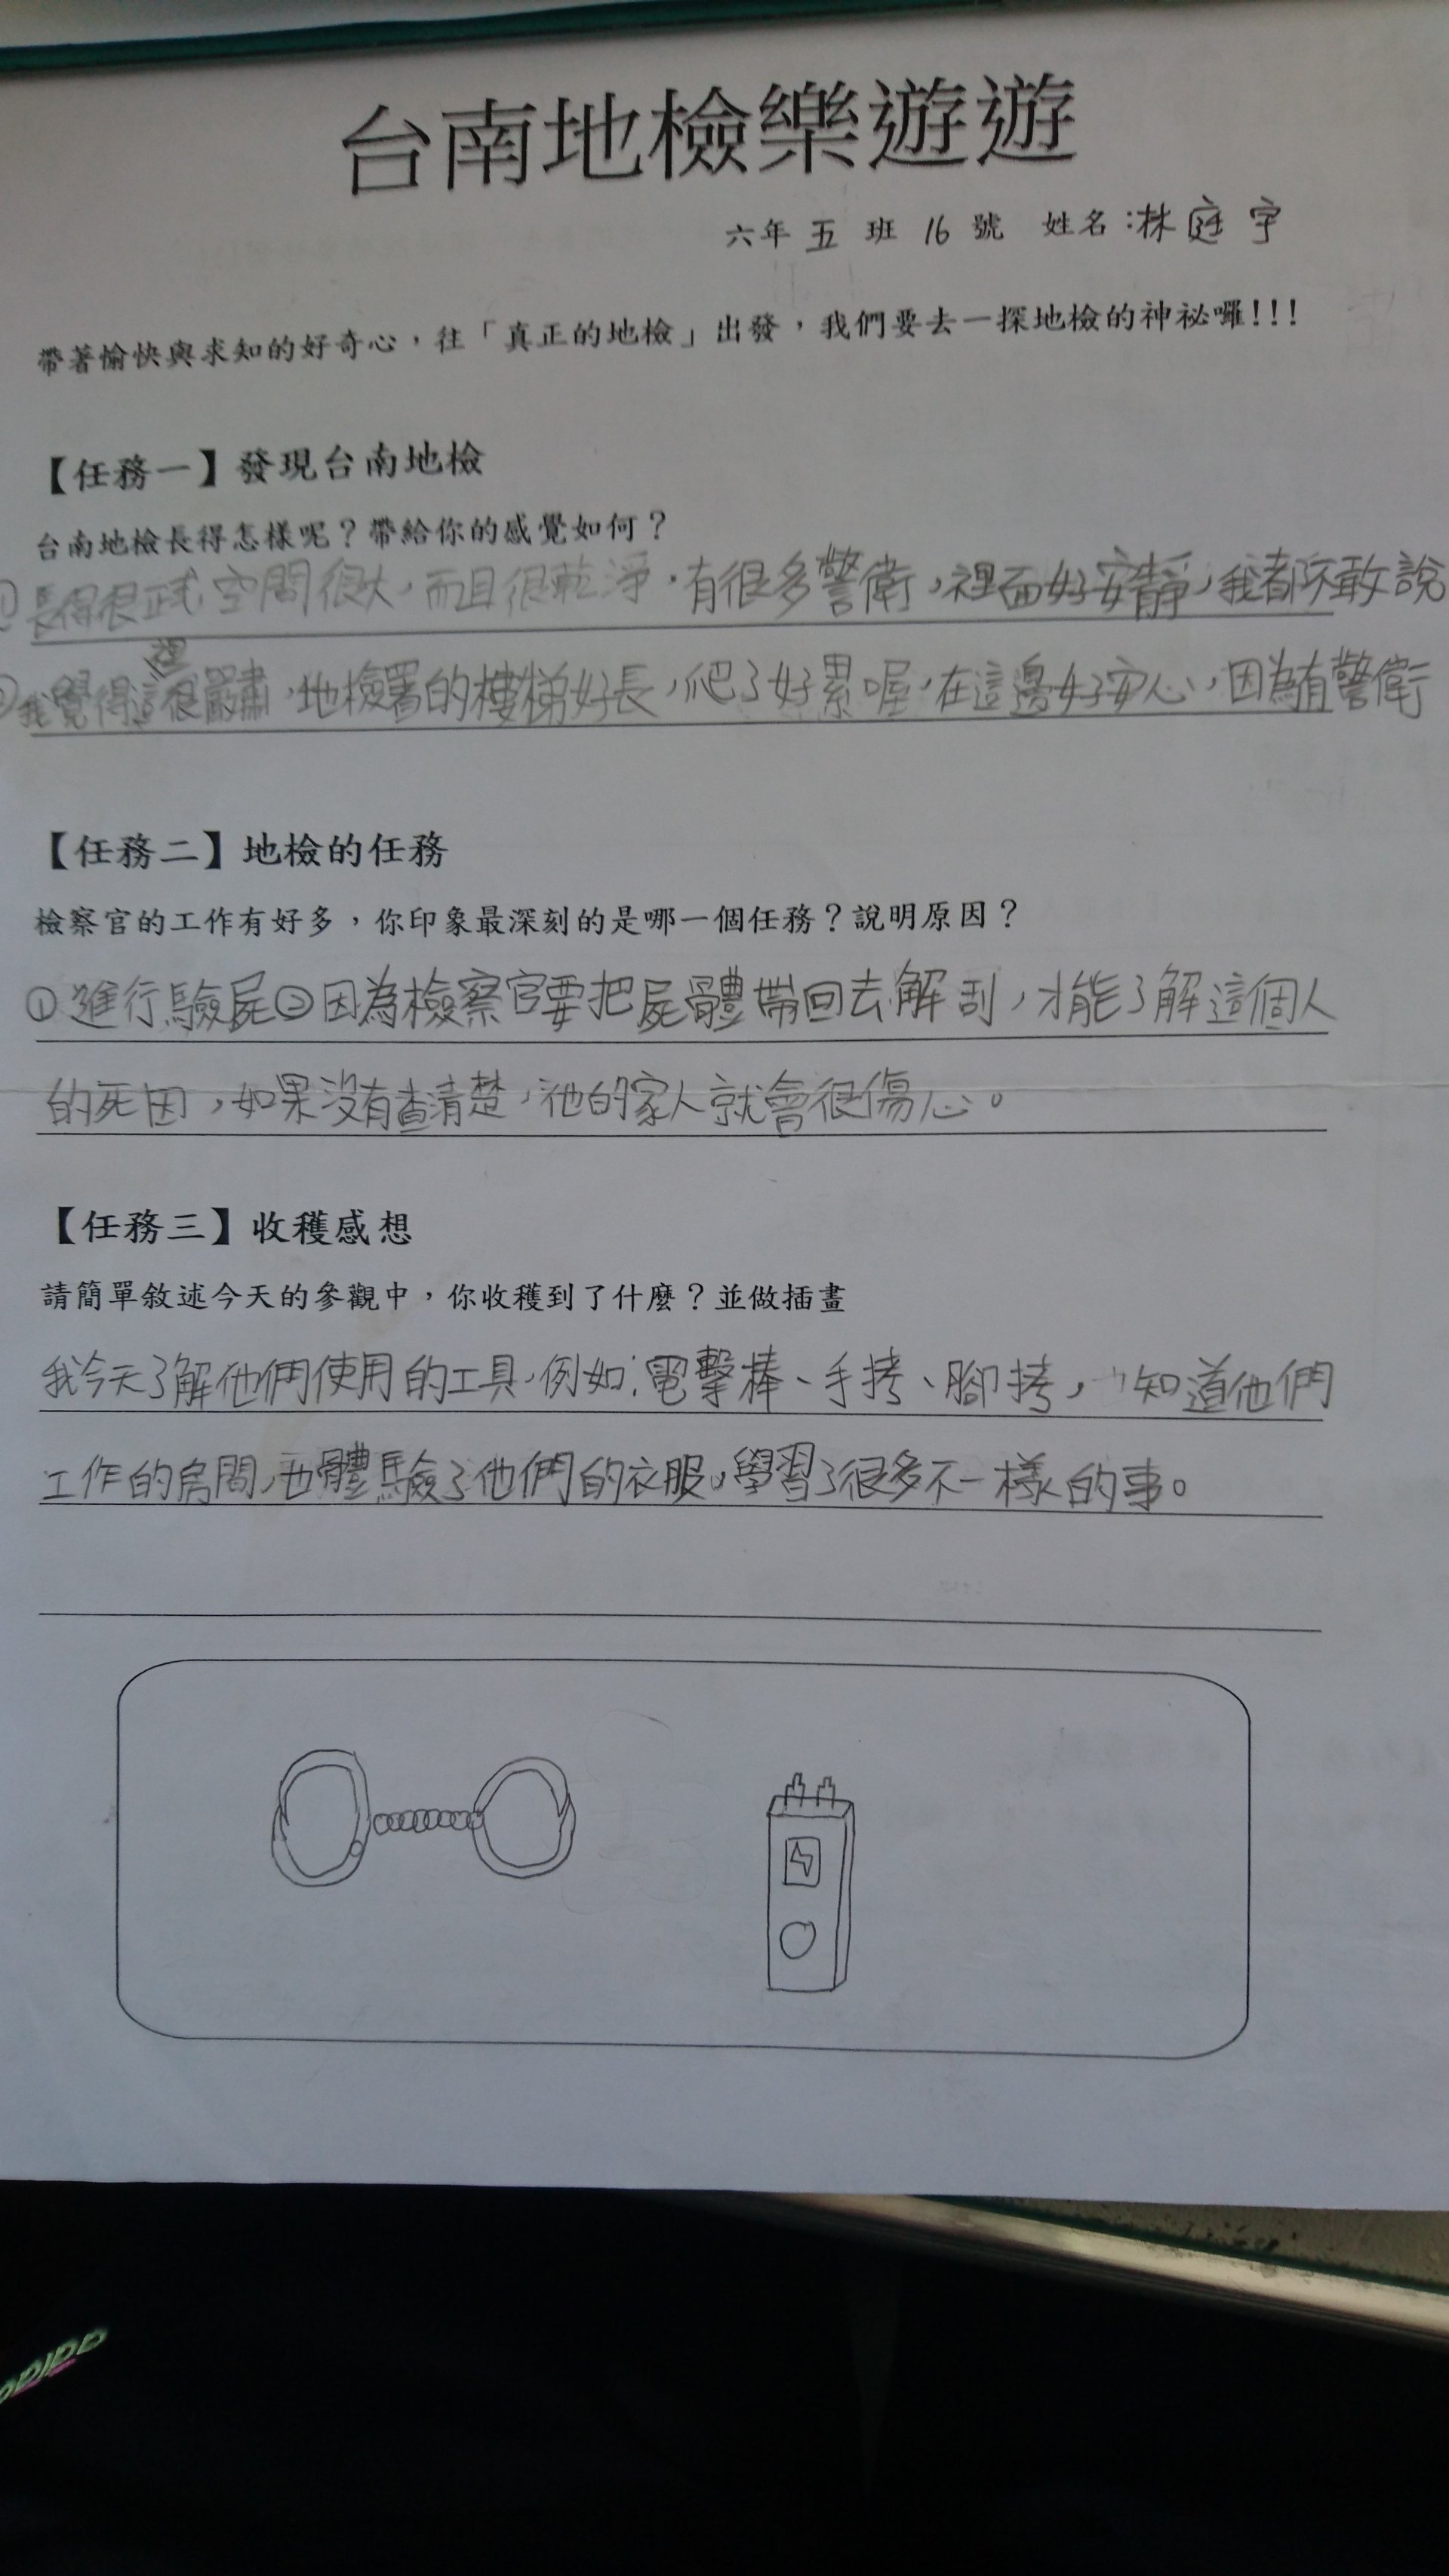 台南地檢樂遊遊
六年 五 班 16 號 姓名：林庭宇
帶著愉快與求知的好奇心，往「真正的地檢」出發，我們要去一探地檢的神祕囉!!!
【任務一】發現台南地檢
台南地檢長得怎樣呢？帶給你的感覺如何？
①長得很正式，空間很大，而且很乾淨，有很多警衛，裡面好安靜，我都不敢說
②我覺得這裡很嚴肅，地檢署的樓梯好長，爬了好累喔，在這邊好安心，因為有警衛
【任務二】地檢的任務
檢察官的工作有好多，你印象最深刻的是哪一個任務？說明原因？
①進行驗屍②因為檢察官要把屍體帶回去解刮，才能了解這個人
的死因，如果沒有查清楚，他的家人就會很傷心。
【任務三】收穫感想
請簡單敘述今天的參觀中，你收穫到了什麼？並做插畫
我今天了解他們使用的工具，例如：電擊棒、手拷、腳拷，知道他們
工作的房間，也體驗了他們的衣服。學習了很多不一樣的事。